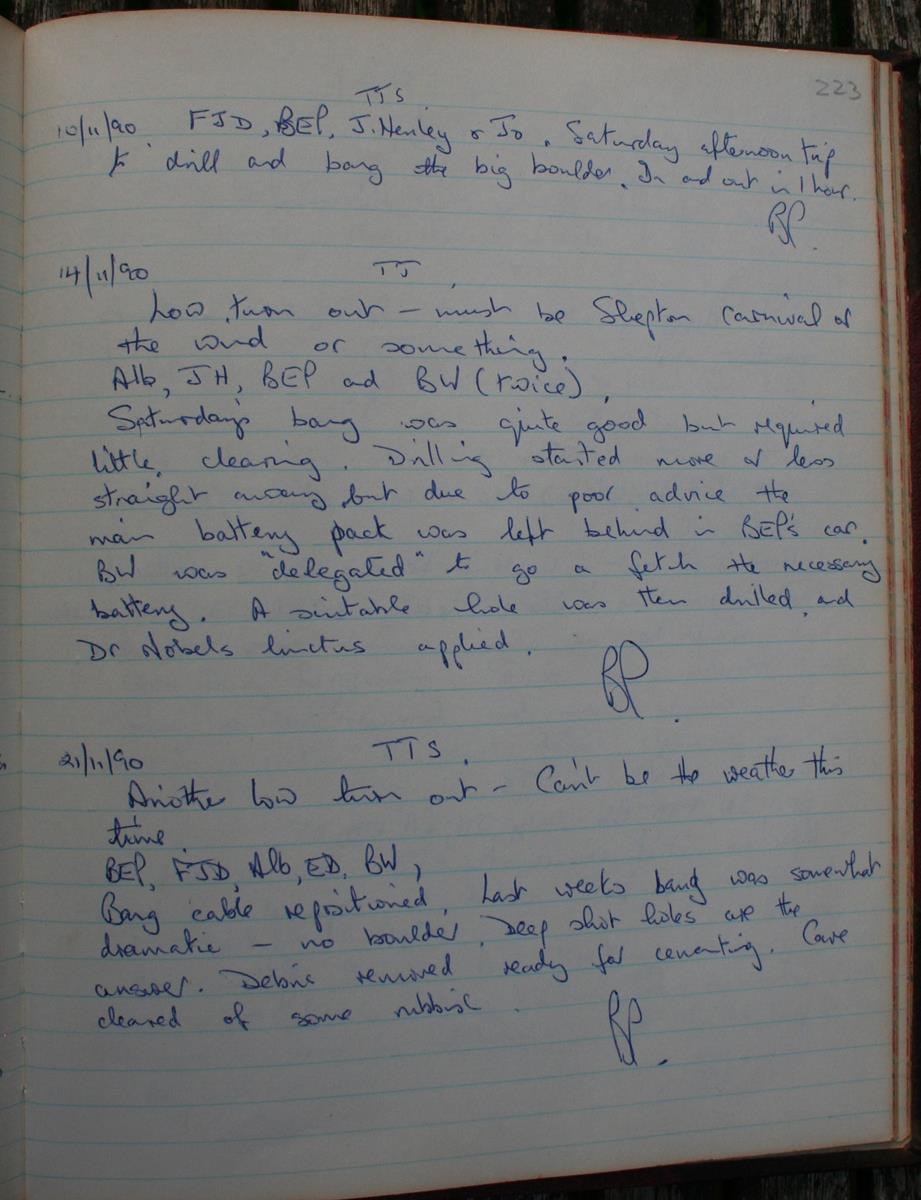 223
TTS
10/11/90 FJD, BEP, J. Henley & Jo. Saturday afternoon trip
to drill and bang the big boulder. In and out in 1 hour.
BP.
14/11/90 TT
Low turn out – must be Shepton Carnival or
the wind or something.
Alb, JH, BEP and BW (twice),
Saturday's bang was quite good but required
little clearing. Drilling started more or less
straight away but due to poor advice the
main battery pack was left behind in BEP's car.
BW was "delegated" to go a fetch the necessary
battery. A suitable hole was then drilled and
Dr Nobels linctus applied.
BP.
21/11/90 TTS.
Another low turn out – Can't be the weather this
time.
BEP, FJD, Alb, ED, BW,
Bang cable repositioned. Last weeks bang was somewhat
dramatic – no boulder. Deep shot holes are the
answer. Debris removed ready for cementing. Cave
cleared of some rubbish.
BP.